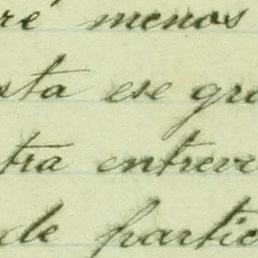 ré menos
sta ese gra
tra entrev
de partic